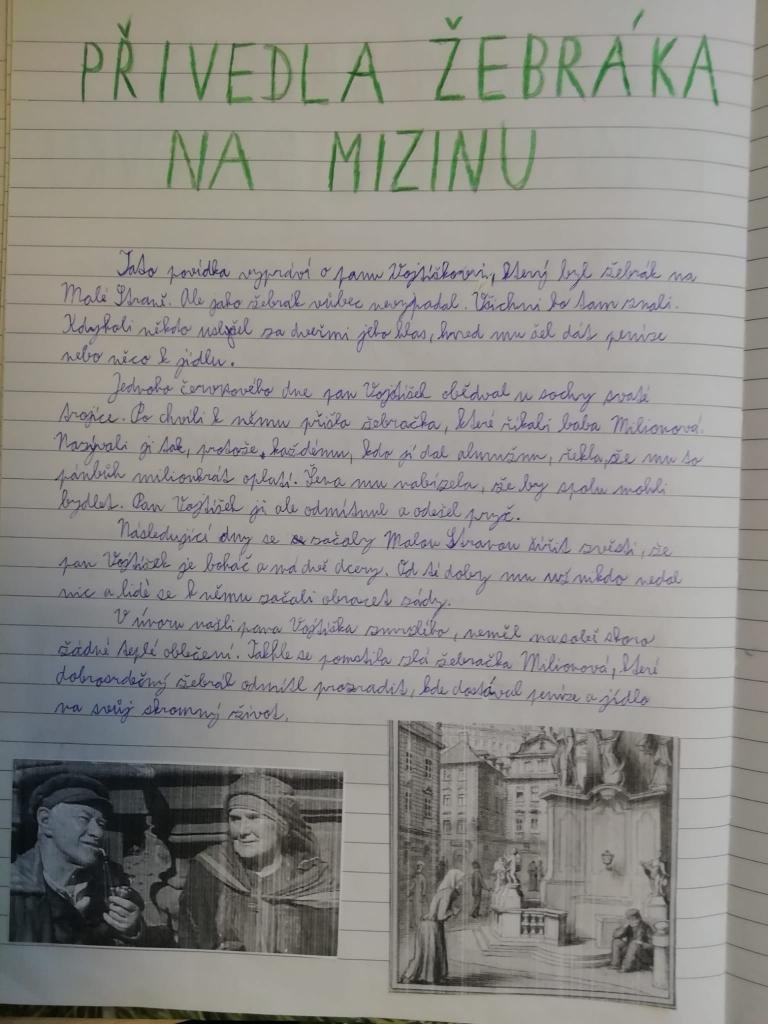 PŘIVEDLA ŽEBRÁKA
NA MIZINU
Tato povídka vypráví o panu Vojtíškovi, který byl žebrák na
Malé Straně. Ale jako žebrák vůbec nevypadal. Všichni ho tam znali.
Kdykoli někdo uslyšel za dveřmi jeho hlas, hned mu šel dát peníze
nebo něco k jídlu.
Jednoho červnového dne pan Vojtíšek obědval u sochy svaté
trojice. Po chvíli k němu přišla žebračka, které říkali baba Milionová.
Nazývali ji tak, protože každému, kdo jí dal almužnu, řekla, že mu to
pánbůh milionkrát oplatí. Žena mu nabízela, že by spolu mohli
bydlet. Pan Vojtíšek ji ale odmítnul a odešel pryč.
Následující dny se začaly Malou Stranou šířit zvěsti, že
pan Vojtíšek je boháč a má dvě dcery. Od té doby mu už nikdo nedal
nic a lidé se k němu začali obracet zády.
V únoru našli pana Vojtíška zmrzlého, neměl na sobě skoro
žádné teplé oblečení. Takhle se pomstila zlá žebračka Milionová, které
dobrosrdečný žebrák odmítl prozradit, kde dostával peníze a jídlo
na svůj skromný život.